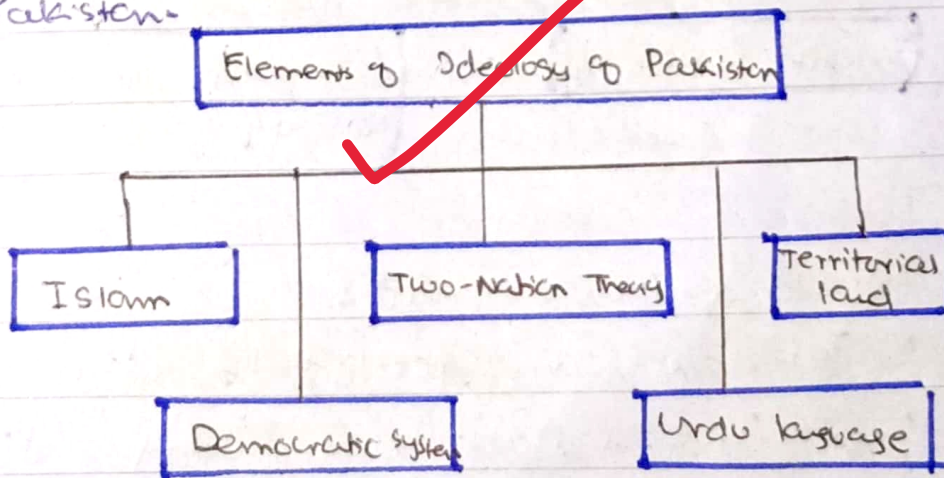 Pakistan-
Elements of Ideology of Pakistan
Islam
Two-Nation Theory
Territorical
land
Democratic system
Urdu language